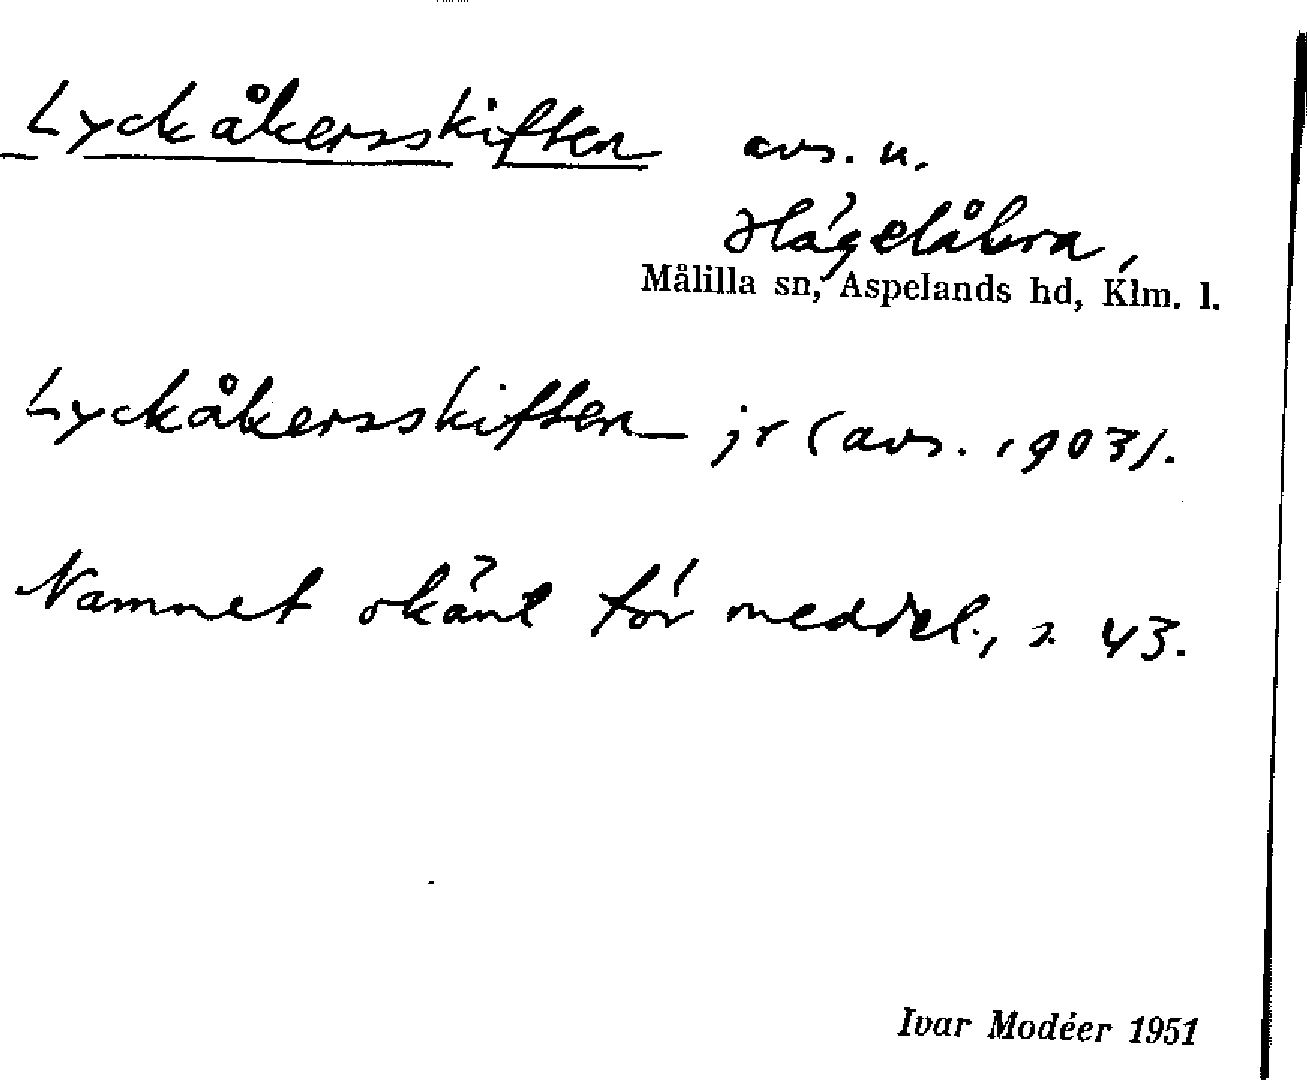 Lyckåkersskiften avs. u.
Hägelåkra,
Målilla sn, Aspelands hd, Klm. l.
Lyckåkersskiften jr (avs. 1903).
Namnet okänt för meddel., s. 43.
Ivar Modéer 1951